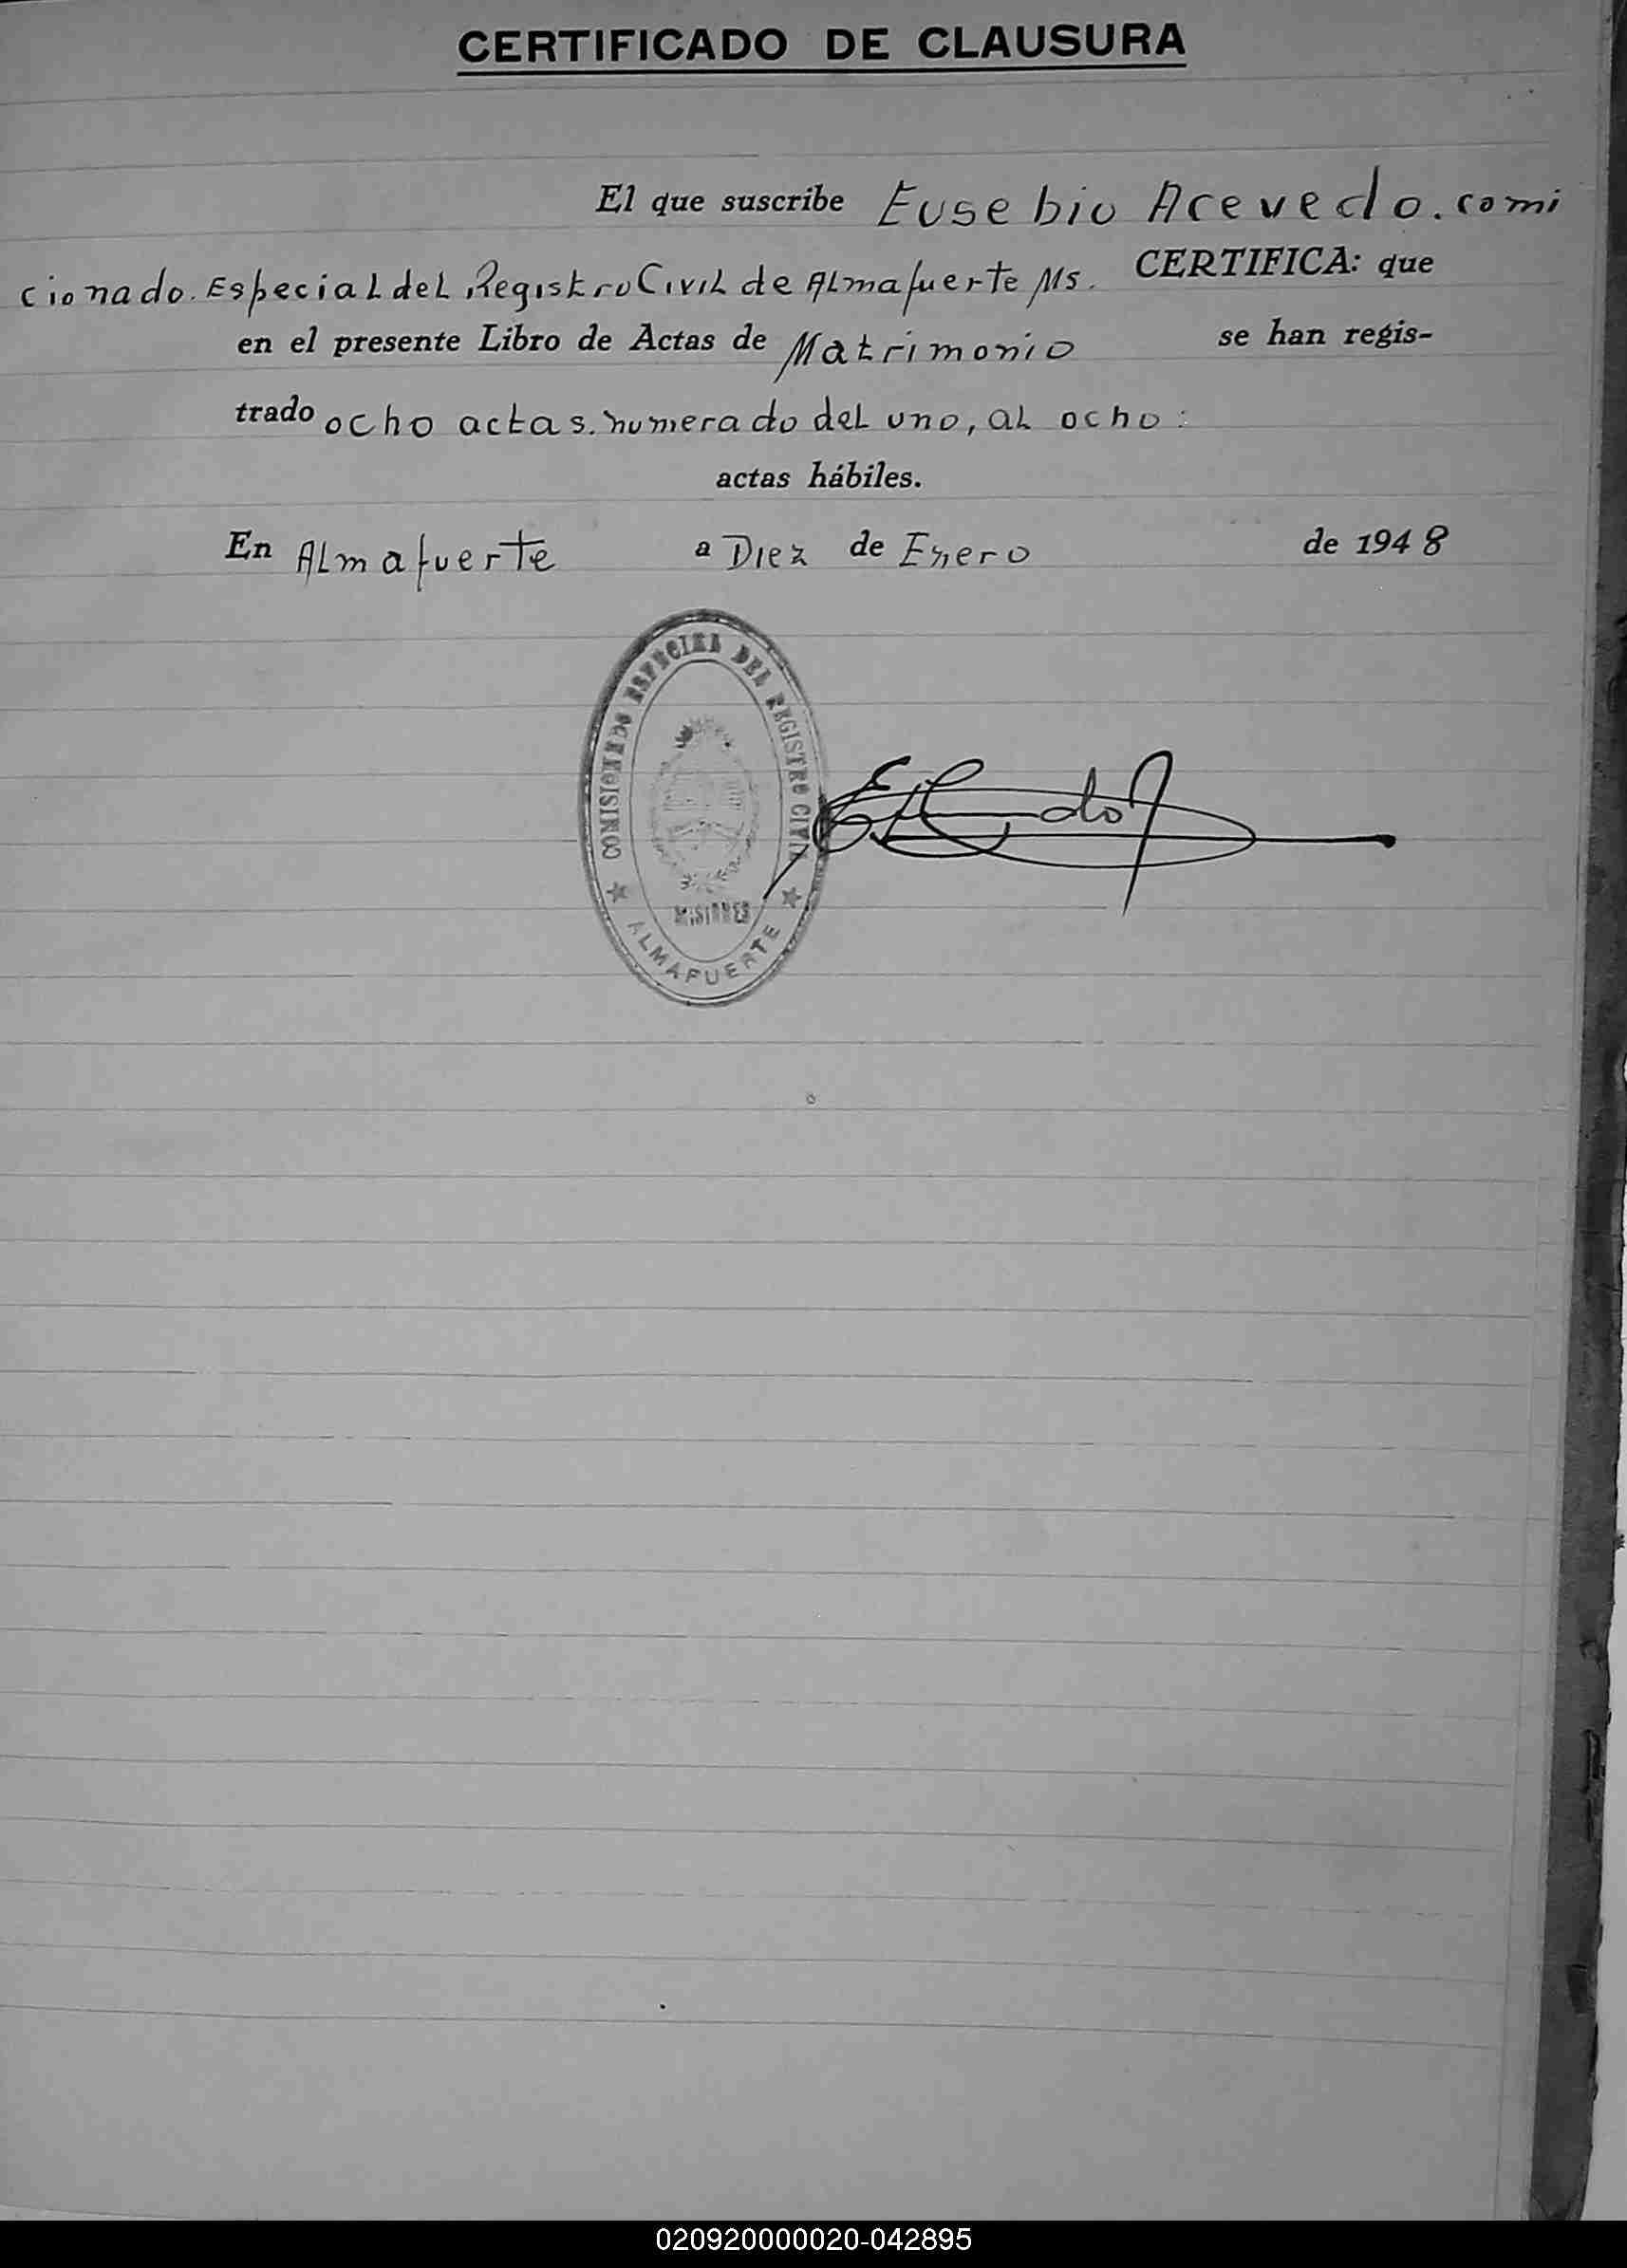 CERTIFICADO DE CLAUSURA
El que suscribe Eusebio Acevedo. comi
cionado. Especial del Registro Civil de Almafuerte Ms. CERTIFICA: que
en el presente Libro de Actas de Matrimonio se han regis-
trado ocho actas. numerado del uno, al ocho:
actas hábiles.
En Almafuerte a Diez de Enero de 1948
COMISIONADO ESPECIAL DEL REGISTRO CIVIL
MISIONES
ALMAFUERTE
020920000020-042895